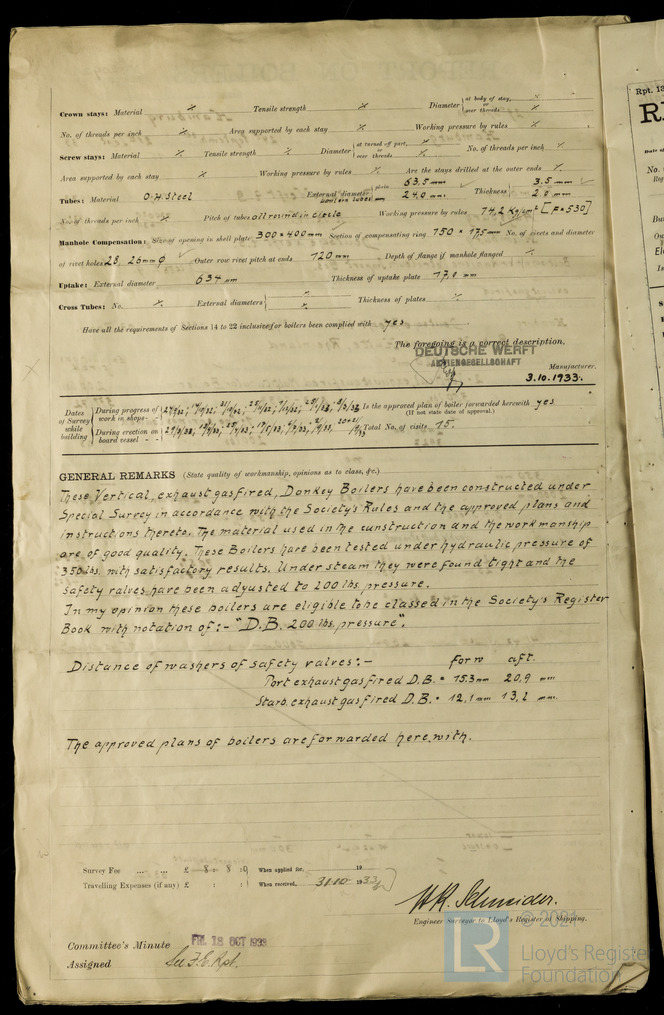 Crown stays: Material × Tensile strength × Diameter { at body of stay, × or over threads ×
No. of threads per inch × Area supported by each stay × Working pressure by rules ×
Screw stays: Material × Tensile strength × Diameter { at turned off part, × or over threads × No. of threads per inch ×
Area supported by each stay × Working pressure by rules × Are the stays drilled at the outer ends ×
Tubes: Material O.H. Steel External diameter { plain 63.5 mm 24.0 mm Thickness { 3.5 mm 2.0 mm
No. of threads per inch × Pitch of tubes all round in circle Working pressure by rules 74,2 Kg/cm² [F=530]
Manhole Compensation: Size of opening in shell plate 300 × 400 mm Section of compensating ring 750 × 175 mm No. of rivets and diameter
of rivet holes 28, 26 mm φ Outer row rivet pitch at ends 120 mm Depth of flange if manhole flanged ×
Uptake: External diameter 634 mm Thickness of uptake plate 17,0 mm
Cross Tubes: No. × External diameters { × × Thickness of plates ×
Have all the requirements of Sections 14 to 22 inclusive for boilers been complied with yes
The foregoing is a correct description,
DEUTSCHE WERFT
AKTIENGESELLSCHAFT
Manufacturer.
3.10.1933.
Dates of Survey while building { During progress of work in shops - - Is the approved plan of boiler forwarded herewith yes
(If not state date of approval.)
During erection on board vessel - - - Total No. of visits 15.
GENERAL REMARKS (State quality of workmanship, opinions as to class, &c.)
These Vertical, exhaust gas fired, Donkey Boilers have been constructed under
Special Survey in accordance with the Society's Rules and the approved plans and
instructions thereto. The material used in the construction and the workmanship
are of good quality. These Boilers have been tested under hydraulic pressure of
350 lbs. with satisfactory results. Under steam they were found tight and the
safety valves have been adjusted to 200 lbs. pressure.
In my opinion these boilers are eligible to be classed in the Society's Register
Book with notation of:- "D.B. 200 lbs. pressure".
Distance of washers of safety valves:- forw aft.
Port exhaust gas fired D.B. = 15.3 mm 20,9 mm
Starb. exhaust gas fired D.B. = 12,1 mm 13,2 mm.
The approved plans of boilers are forwarded herewith.
Survey Fee ... ... £ 8 : 8 : 0 When applied for, 19
Travelling Expenses (if any) £ : : When received, 31.10 1933
W. R. Schneider.
Engineer Surveyor to Lloyd's Register of Shipping.
Committee's Minute FRI. 13 OCT 1933
Assigned See F.E. Rpt.
© 2021
LR
Lloyd's Register
Foundation
Rpt. 13